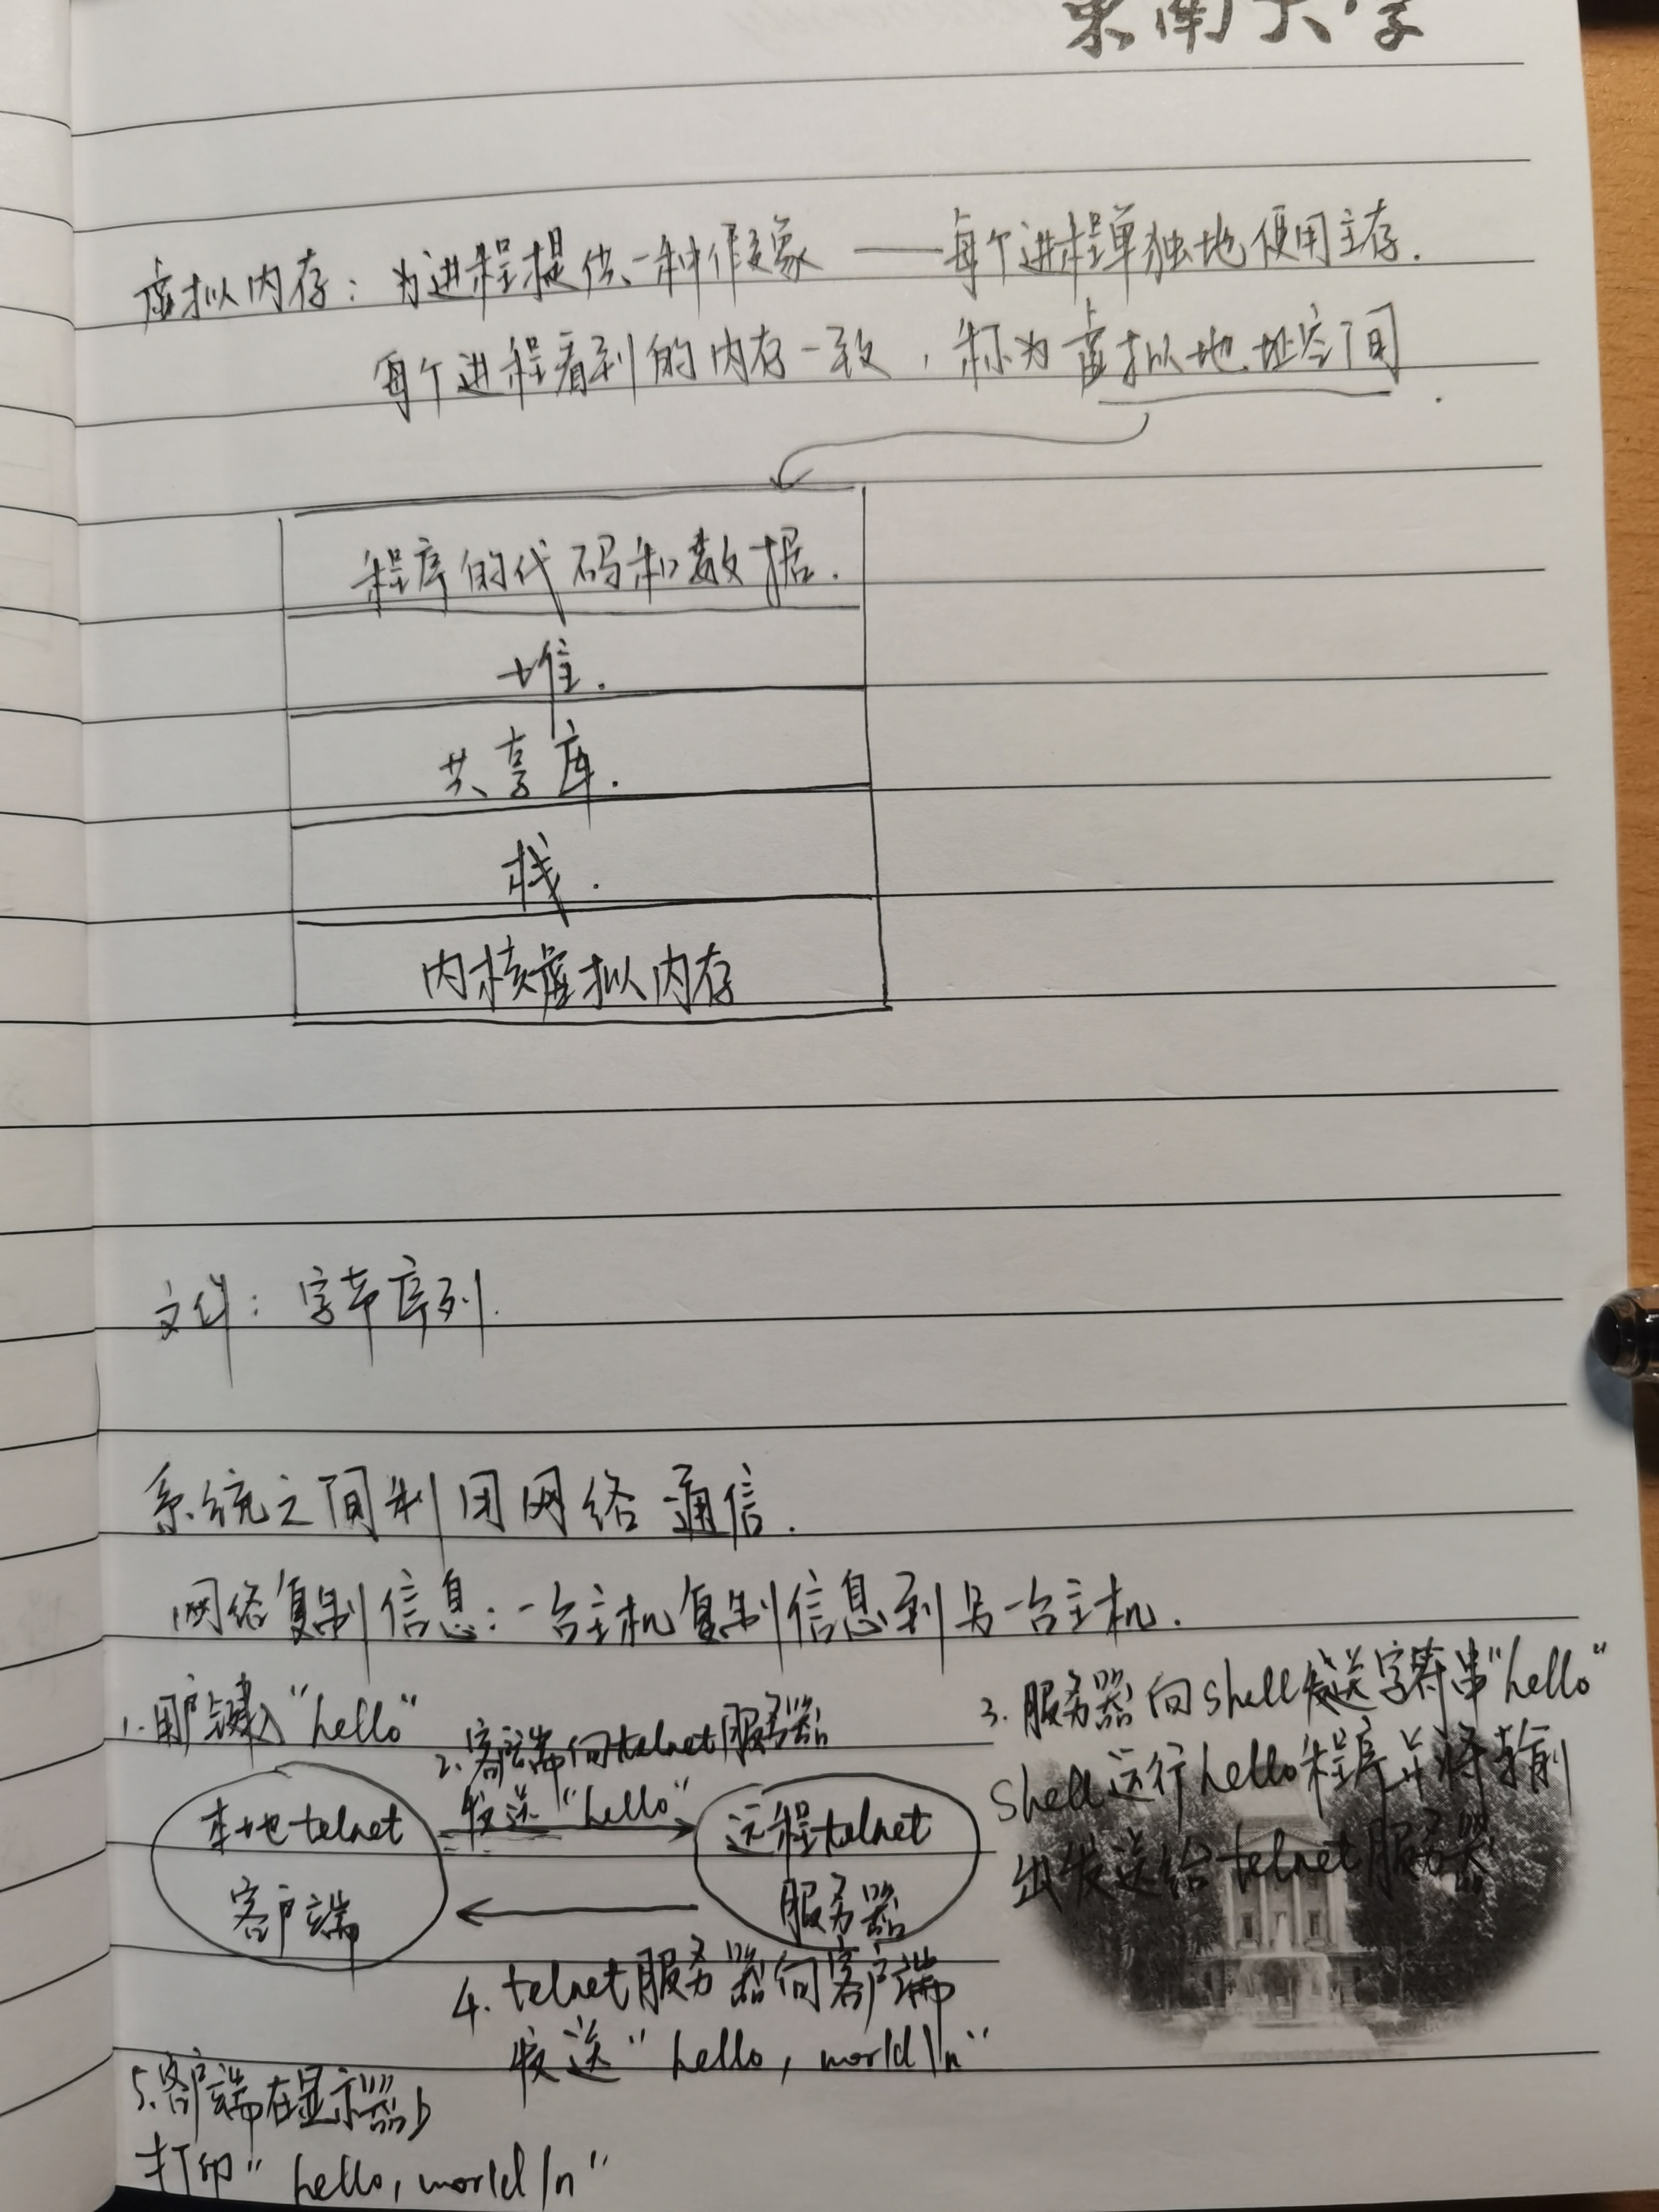 东南大学
虚拟内存：为进程提供一种假象 —— 每个进程单独地使用主存.
每个进程看到的内存一致，称为虚拟地址空间.
程序的代码和数据.
堆.
共享库.
栈.
内核虚拟内存
文件：字节序列.
系统之间利用网络通信.
网络复制信息：一台主机复制信息到另一台主机.
1.用户键入"hello"
2.客户端向telnet服务器
发送"hello"
3.服务器向shell发送字符串"hello"
shell运行hello程序并将输
出发送给telnet服务器
本地telnet
客户端
远程telnet
服务器
4.telnet服务器向客户端
发送"hello, world\n"
5.客户端在显示器上
打印"hello, world/n"